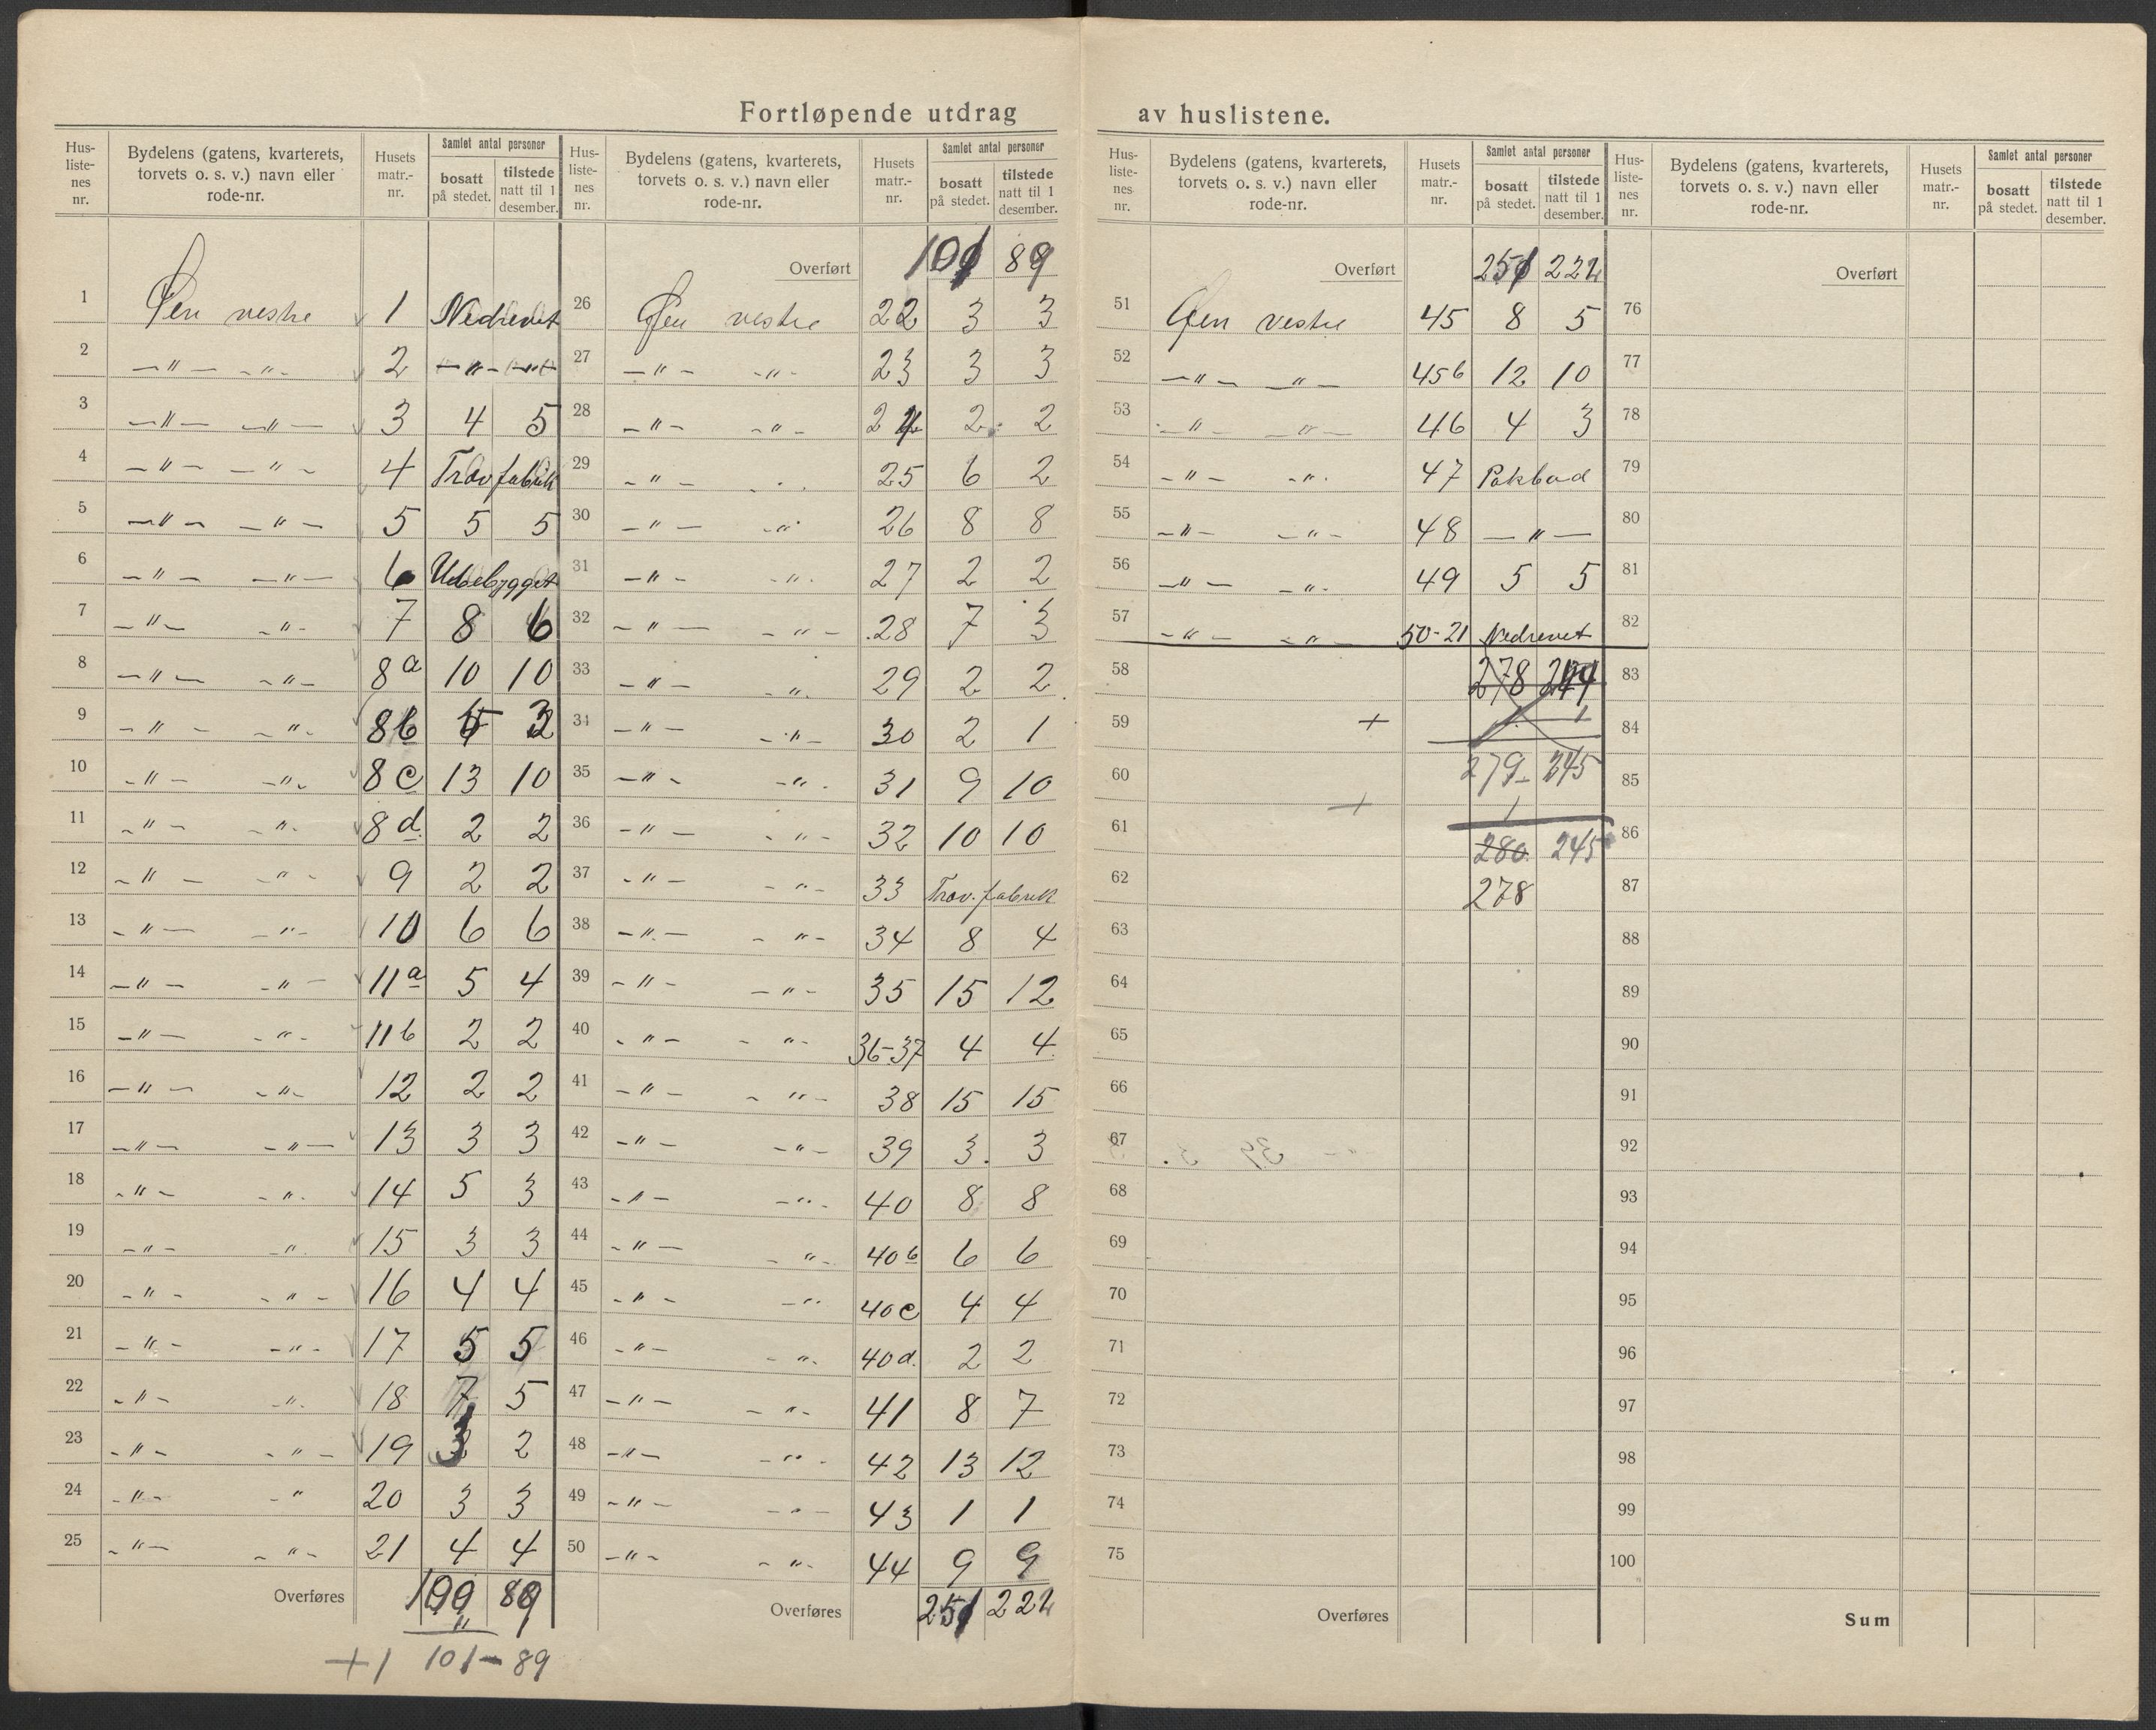 Fortløpende utdrag av huslistene.
Hus-liste-nes nr. | Bydelens (gatens, kvarterets, torvets o. s. v.) navn eller rode-nr. | Husets matr.-nr. | Samlet antal personer | bosatt på stedet. | tilstede natt til 1 desember.
1 Øen vestre 1 Nedrevet
2 —"— —"— 2 —"—
3 —"— —"— 3 4 5
4 —"— —"— 4 Travfabrik
5 —"— —"— 5 5 5
6 —"— —"— 6 Ubebygget
7 —"— —"— 7 8 6
8 —"— —"— 8a 10 10
9 —"— —"— 8b 3
10 —"— —"— 8c 13 10
11 —"— —"— 8d. 2 2
12 —"— —"— 9 2 2
13 —"— —"— 10 6 6
14 —"— —"— 11a 5 4
15 —"— —"— 11b 2 2
16 —"— —"— 12 2 2
17 —"— —"— 13 3 3
18 —"— —"— 14 5 3
19 —"— —"— 15 3 3
20 —"— —"— 16 4 4
21 —"— —"— 17 5 5
22 —"— —"— 18 7 5
23 —"— —"— 19 3 2
24 —"— " 20 3 3
25 —"— —"— 21 4 4
Overføres 89
+1 101 - 89
Hus-liste-nes nr. | Bydelens (gatens, kvarterets, torvets o. s. v.) navn eller rode-nr. | Husets matr.-nr. | Samlet antal personer | bosatt på stedet. | tilstede natt til 1 desember.
Overført 101 89
26 Øen vestre 22 3 3
27 —"— —"— 23 3 3
28 —"— —"— 24 2 2
29 —"— —"— 25 6 2
30 —"— —"— 26 8 8
31 —"— —"— 27 2 2
32 —"— —"— 28 7 3
33 —"— —"— 29 2 2
34 —"— —"— 30 2 1
35 —"— —"— 31 9 10
36 —"— —"— 32 10 10
37 —"— —"— 33 Trav.fabrik
38 —"— —"— 34 8 4
39 —"— —"— 35 15 12
40 —"— —"— 36-37 4 4
41 —"— —"— 38 15 15
42 —"— —"— 39 3. 3
43 —"— —"— 40 8 8
44 —"— —"— 40b 6 6
45 —"— —"— 40c 4 4
46 —"— —"— 40d. 2 2
47 —"— —"— 41 8 7
48 —"— —"— 42 13 12
49 —"— —"— 43 1 1
50 —"— —"— 44 9 9
Overføres 251 222
Hus-liste-nes nr. | Bydelens (gatens, kvarterets, torvets o. s. v.) navn eller rode-nr. | Husets matr.-nr. | Samlet antal personer | bosatt på stedet. | tilstede natt til 1 desember.
Overført 251 222
51 Øen vestre 45 8 5
52 —"— —"— 45b 12 10
53 —"— —"— 46 4 3
54 —"— —"— 47 Pakbod
55 —"— —"— 48 —"—
56 —"— —"— 49 5 5
57 —"— —"— 50-21 Nedrevet
58 278 244
59 + 1 1
60 279- 245
+ 1
61 280. 245
62 278
63
64
65
66
67
68
69
70
71
72
73
74
75
Overføres
Hus-liste-nes nr. | Bydelens (gatens, kvarterets, torvets o. s. v.) navn eller rode-nr. | Husets matr.-nr. | Samlet antal personer | bosatt på stedet. | tilstede natt til 1 desember.
Overført
76
77
78
79
80
81
82
83
84
85
86
87
88
89
90
91
92
93
94
95
96
97
98
99
100
Sum